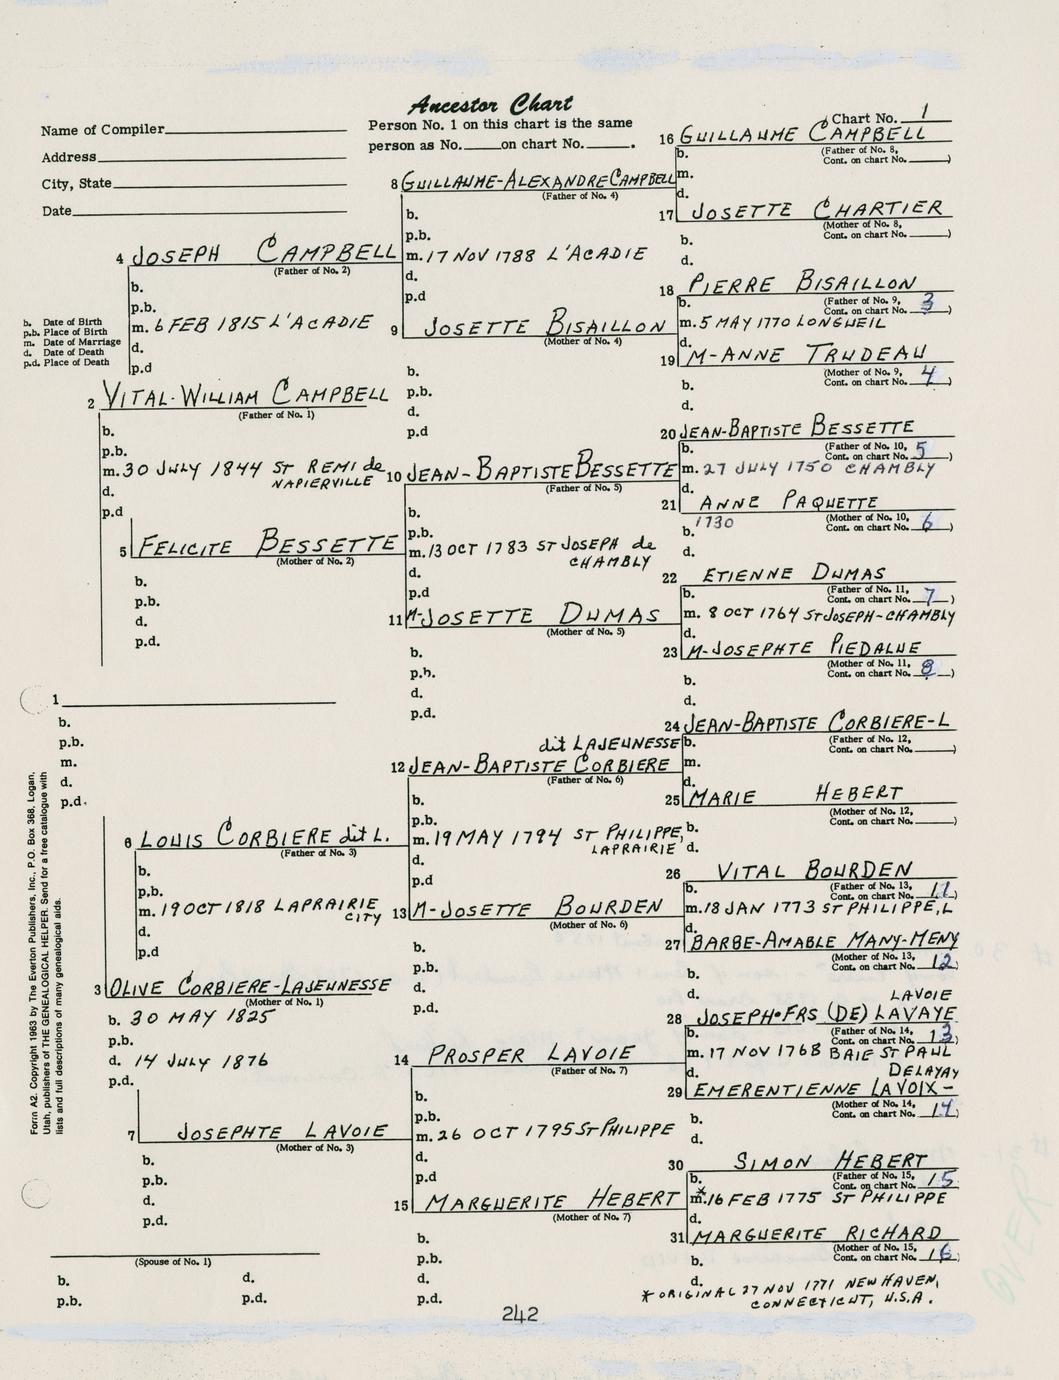 Ancestor Chart
Chart No. 1
Name of Compiler
Address
City, State
Date
Person No. 1 on this chart is the same
person as No. on chart No. .
b. Date of Birth
p.b. Place of Birth
m. Date of Marriage
d. Date of Death
p.d. Place of Death
1
b.
p.b.
m.
d.
p.d.
2 VITAL-WILLIAM CAMPBELL
(Father of No. 1)
b.
p.b.
m. 30 JULY 1844 ST REMI de
NAPIERVILLE
d.
p.d
3 OLIVE CORBIERE-LAJEUNESSE
(Mother of No. 1)
b. 30 MAY 1825
p.b.
d. 14 JULY 1876
p.d.
4 JOSEPH CAMPBELL
(Father of No. 2)
b.
p.b.
m. 6 FEB 1815 L'ACADIE
d.
p.d
5 FELICITE BESSETTE
(Mother of No. 2)
b.
p.b.
d.
p.d.
6 LOUIS CORBIERE dit L.
(Father of No. 3)
b.
p.b.
m. 19 OCT 1818 LAPRAIRIE
CITY
d.
p.d
7 JOSEPHTE LAVOIE
(Mother of No. 3)
b.
p.b.
d.
p.d.
(Spouse of No. 1)
b.
d.
p.b.
p.d.
8 GUILLAUME-ALEXANDRE CAMPBELL
(Father of No. 4)
b.
p.b.
m. 17 NOV 1788 L'ACADIE
d.
p.d
9 JOSETTE BISAILLON
(Mother of No. 4)
b.
p.b.
d.
p.d
10 JEAN-BAPTISTE BESSETTE
(Father of No. 5)
b.
p.b.
m. 13 OCT 1783 ST JOSEPH de
CHAMBLY
d.
p.d
11 M-JOSETTE DUMAS
(Mother of No. 5)
b.
p.b.
d.
p.d.
dit LAJEUNESSE
12 JEAN-BAPTISTE CORBIERE
(Father of No. 6)
b.
p.b.
m. 19 MAY 1794 ST PHILIPPE,
LAPRAIRIE
d.
p.d
13 M-JOSETTE BOURDEN
(Mother of No. 6)
b.
p.b.
d.
p.d.
14 PROSPER LAVOIE
(Father of No. 7)
b.
p.b.
m. 26 OCT 1795 ST PHILIPPE
d.
p.d
15 MARGUERITE HEBERT
(Mother of No. 7)
b.
p.b.
d.
p.d.
16 GUILLAUME CAMPBELL
(Father of No. 8,
Cont. on chart No. )
b.
m.
d.
17 JOSETTE CHARTIER
(Mother of No. 8,
Cont. on chart No. )
b.
d.
18 PIERRE BISAILLON
(Father of No. 9,
Cont. on chart No. 3 )
b.
m. 5 MAY 1770 LONGUEIL
d.
19 M-ANNE TRUDEAU
(Mother of No. 9,
Cont. on chart No. 4 )
b.
d.
20 JEAN-BAPTISTE BESSETTE
(Father of No. 10,
Cont. on chart No. 5 )
b.
m. 27 JULY 1750 CHAMBLY
d.
21 ANNE PAQUETTE
(Mother of No. 10,
Cont. on chart No. 6 )
b. 1730
d.
22 ETIENNE DUMAS
(Father of No. 11,
Cont. on chart No. 7 )
b.
m. 8 OCT 1764 ST JOSEPH-CHAMBLY
d.
23 M-JOSEPHTE PIEDALUE
(Mother of No. 11,
Cont. on chart No. 8 )
b.
d.
24 JEAN-BAPTISTE CORBIERE-L
(Father of No. 12,
Cont. on chart No. )
b.
m.
d.
25 MARIE HEBERT
(Mother of No. 12,
Cont. on chart No. )
b.
d.
26 VITAL BOURDEN
(Father of No. 13,
Cont. on chart No. 11 )
b.
m. 18 JAN 1773 ST PHILIPPE, L
d.
27 BARBE-AMABLE MANY-MENY
(Mother of No. 13,
Cont. on chart No. 12 )
b.
d.
LAVOIE
28 JOSEPH-FRS (DE) LAVAYE
(Father of No. 14,
Cont. on chart No. 13 )
b.
m. 17 NOV 1768 BAIE ST PAUL
d.
DELAYAY
29 EMERENTIENNE LAVOIX-
(Mother of No. 14,
Cont. on chart No. 14 )
b.
d.
30 SIMON HEBERT
(Father of No. 15,
Cont. on chart No. 15 )
b.
*
m. 16 FEB 1775 ST PHILIPPE
d.
31 MARGUERITE RICHARD
(Mother of No. 15,
Cont. on chart No. 16 )
b.
d.
* ORIGINAL 27 NOV 1771 NEW HAVEN,
CONNECTICUT, U.S.A.
242
Form A2. Copyright 1963 by The Everton Publishers, Inc., P.O. Box 368, Logan,
Utah, publishers of THE GENEALOGICAL HELPER. Send for a free catalogue with
lists and full descriptions of many genealogical aids.